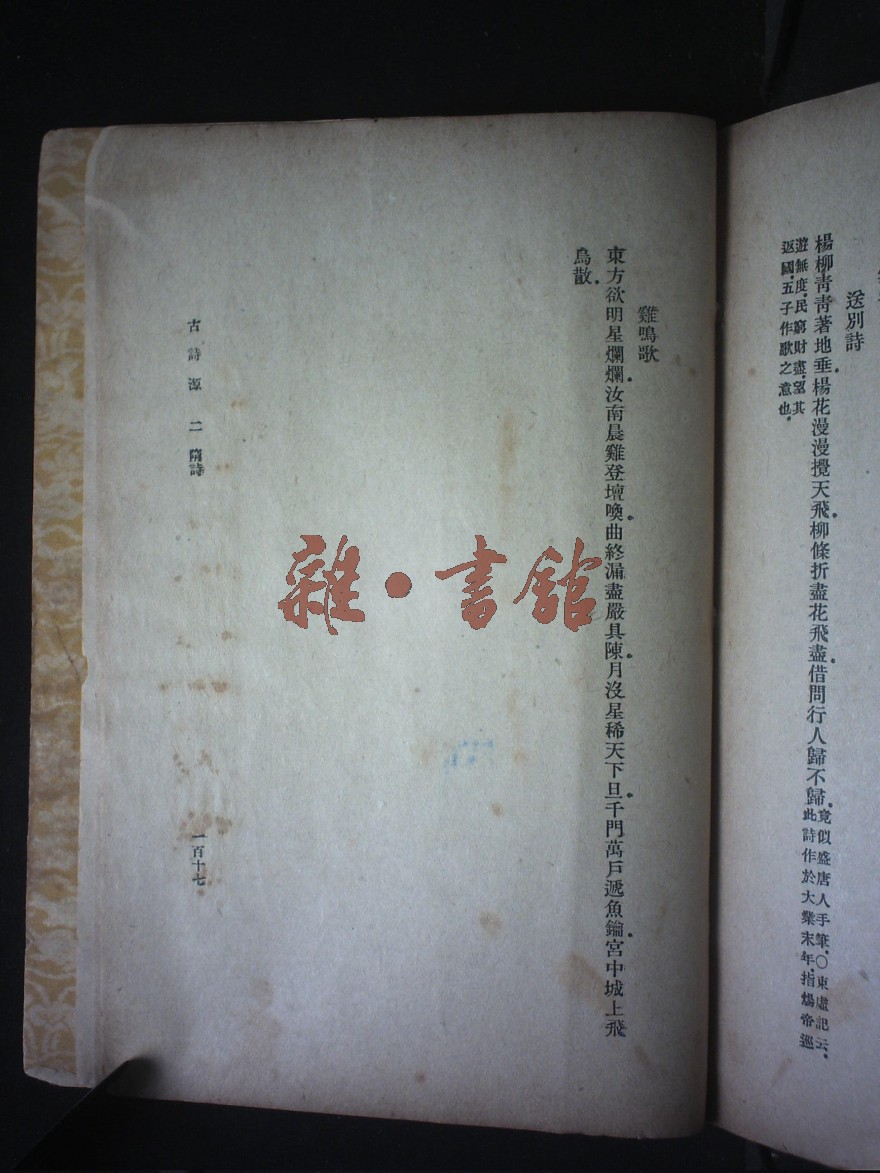 送別詩
楊柳青青著地垂。楊花漫漫攪天飛。柳條折盡花飛盡。借問行人歸不歸。竟似盛唐人手筆。〇東虛記云、
此詩作於大業末年、指煬帝巡
遊無度、民窮財盡、望其
返國、五子作歌之意也。
雞鳴歌
東方欲明星爛爛。汝南晨雞登壇喚。曲終漏盡嚴具陳。月沒星稀天下旦。千門萬戶遞魚鑰。宮中城上飛
烏散。
古詩源 二 隋詩
一百十七
雜·書館